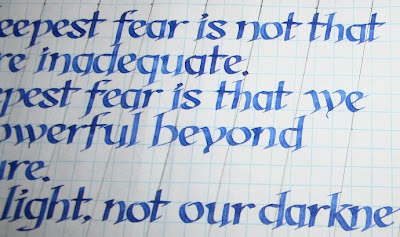 eepest fear is not that
re inadequate.
epest fear is that we
owerful beyond
ure.
light, not our darkne